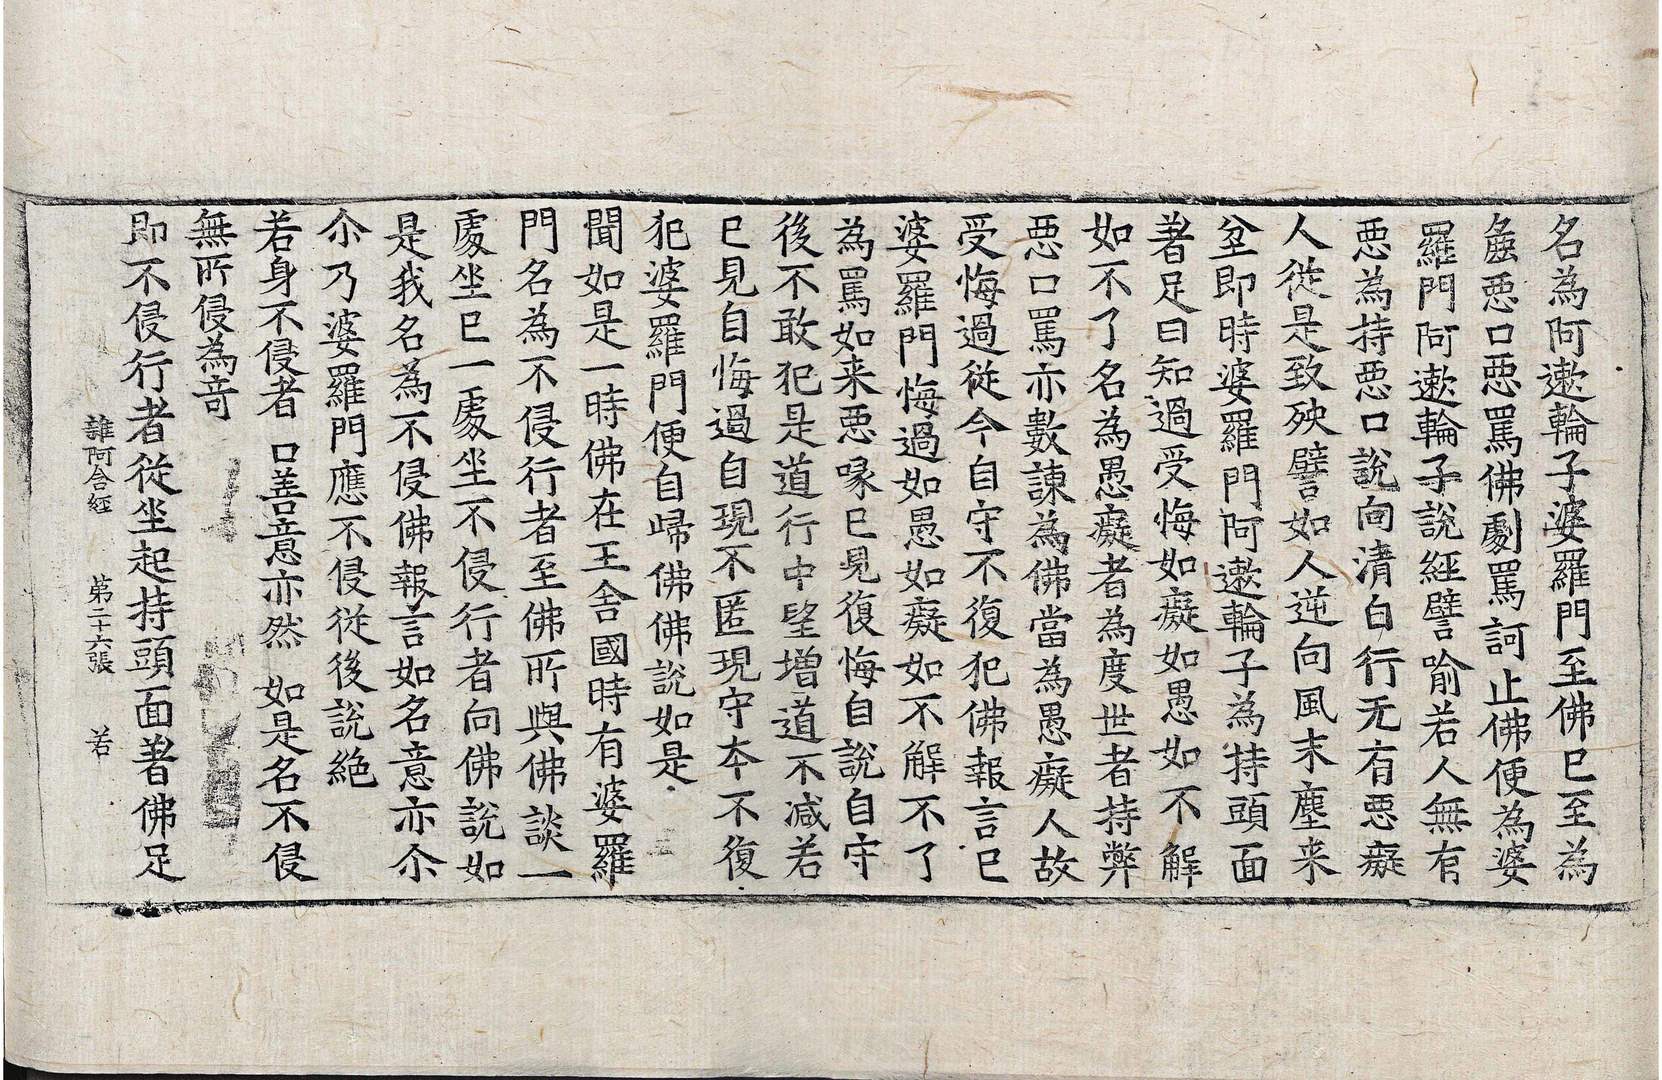 名為阿遬輪子婆羅門至佛已至為
麁惡口惡罵佛劇罵訶止佛便為婆
羅門阿遬輪子說經譬喻若人無有
惡為持惡口說向清白行无有惡癡
人從是致殃譬如人逆向風末塵来
坌即時婆羅門阿遬輪子為持頭面
著足曰知過受悔如癡如愚如不解
如不了名為愚癡者為度世者持弊
惡口罵亦數諫為佛當為愚癡人故
受悔過從今自守不復犯佛報言已
婆羅門悔過如愚如癡如不解不了
為罵如来惡喙已見復悔自說自守
後不敢犯是道行中望增道不減若
已見自悔過自現不匿現守本不復
犯婆羅門便自歸佛佛說如是
聞如是一時佛在王舍國時有婆羅
門名為不侵行者至佛所與佛談一
處坐已一處坐不侵行者向佛說如
是我名為不侵佛報言如名意亦尒
尒乃婆羅門應不侵從後說絕
若身不侵者 口善意亦然 如是名不侵
無所侵為奇
即不侵行者從坐起持頭面著佛足
雜阿含經 第二十六張 若